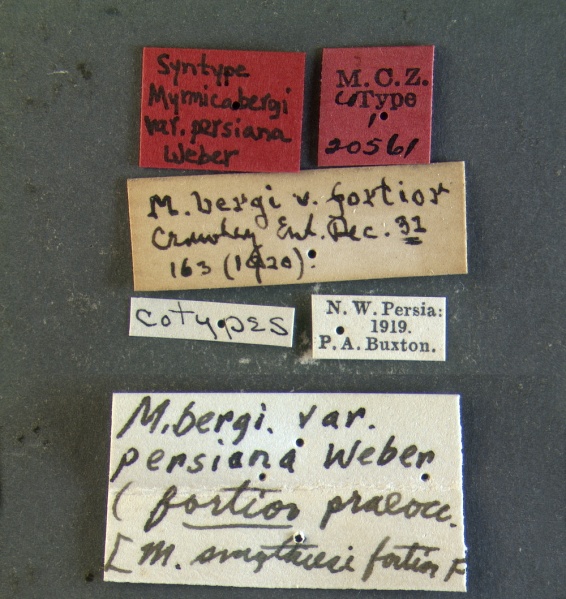 Syntype
Myrmica bergi
var. persiana
Weber
M.C.Z.
CoType
1.
20561
M. bergi v. fortior
Crawley Ent. Rec. 32
163 (1920).
Cotypes
N. W. Persia:
1919.
P. A. Buxton.
M. bergi. var.
persiana Weber
( fortior praeocc.
[ M. smythiesi fortior F